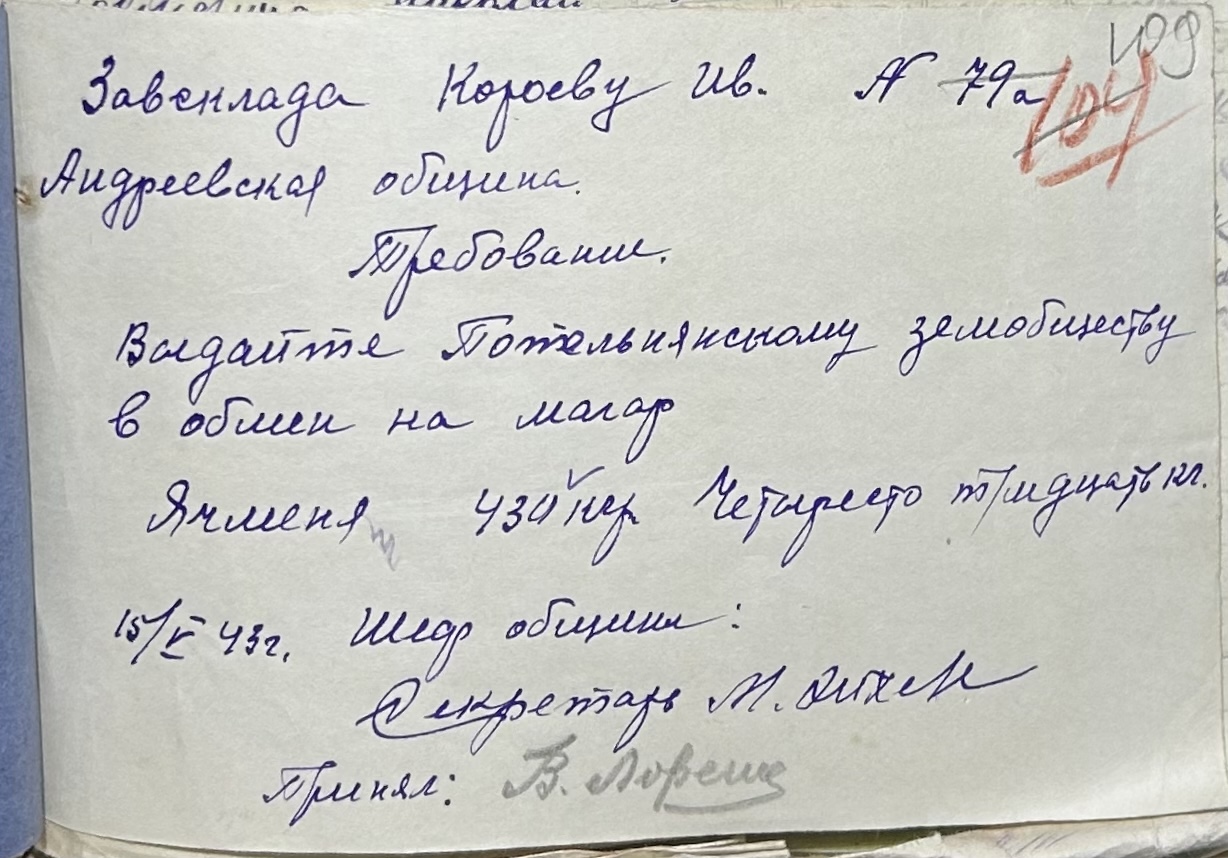 109
Завсклада Короеву Ив. № 79а 104
Андреевская община.
Требование.
Выдайте Потельнянскому земобществу
в обмен на магар
Ячменя 430 кгр. Четыресто тридцать кг.
15/V 43г. Шеф общины:
Секретарь М.
Принял: В.